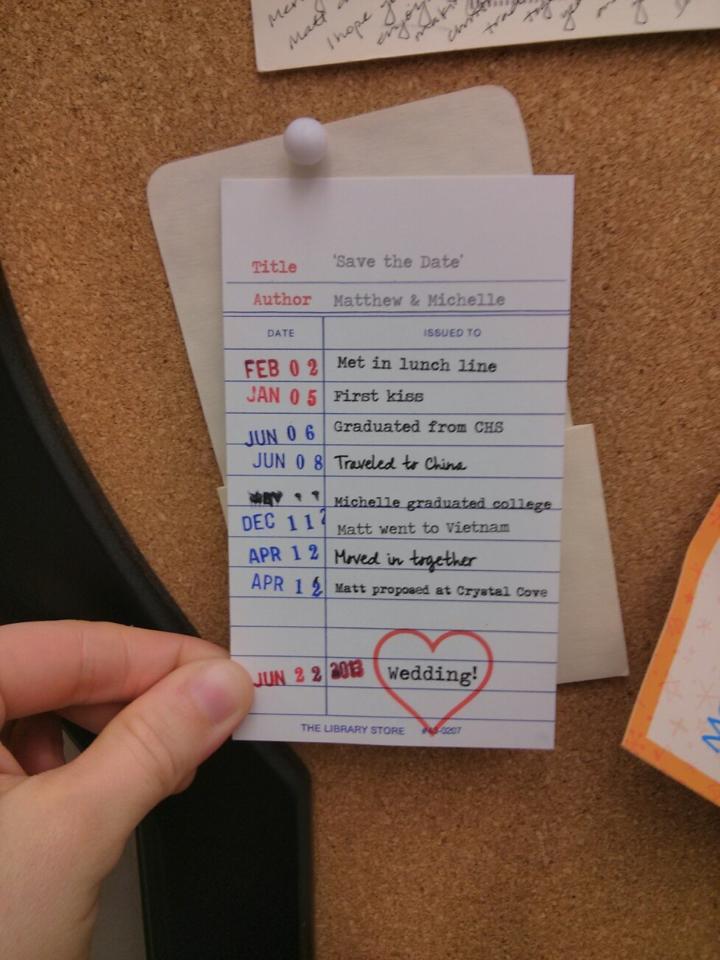 Matt
I hope
Title 'Save the Date'
Author Matthew & Michelle
DATE ISSUED TO
FEB 02 Met in lunch line
JAN 05 First kiss
JUN 06 Graduated from CHS
JUN 08 Traveled to China
Michelle graduated college
DEC 11 Matt went to Vietnam
APR 12 Moved in together
APR 12 Matt proposed at Crystal Cove
JUN 22 2013 Wedding!
THE LIBRARY STORE #43-0207